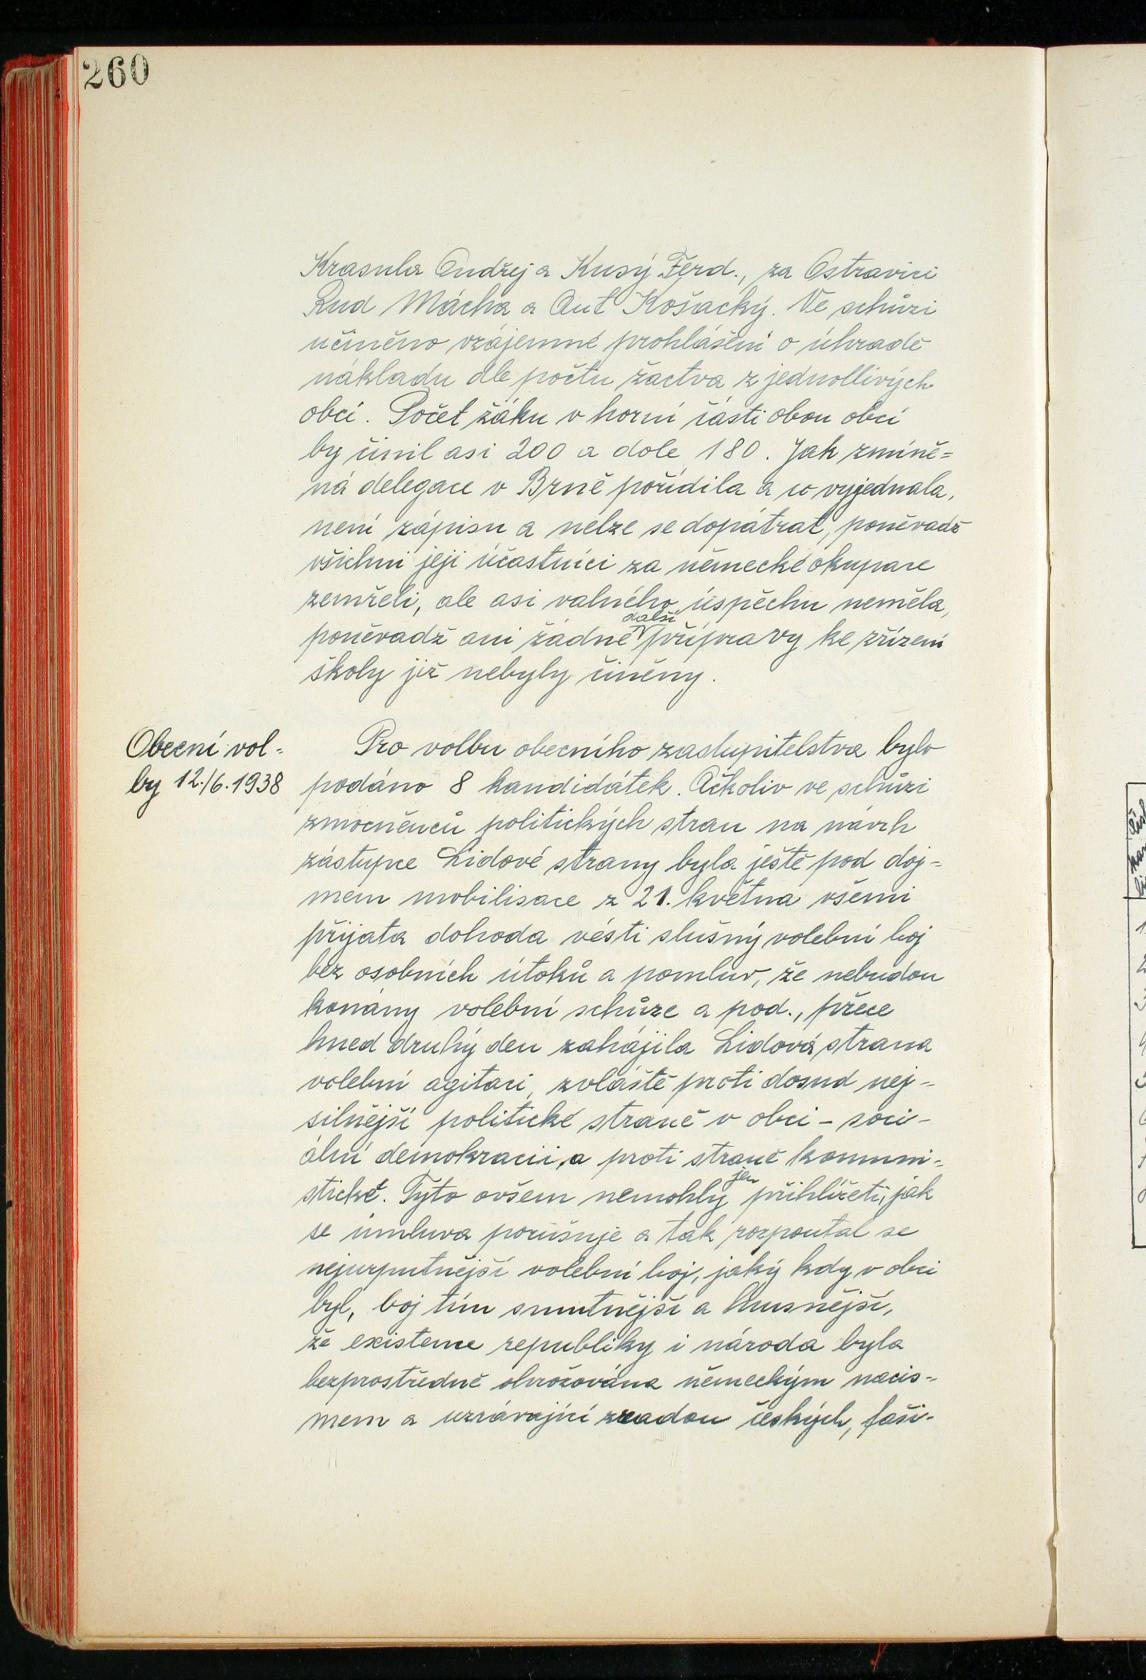 260
Krasula Ondřej a Kusý Ferd., za Ostravici
Rud Mácha a Ant Košacký. Ve schůzi
učiněno vzájemné prohlášení o úhradě
nákladu dle počtu žactva z jednotlivých
obcí. Počet žáku v horní části obou obcí
by činil asi 200 a dole 180. Jak zmíně=
ná delegace v Brně pořídila a co vyjednala,
není zápisu a nelze se dopátrat, poněvadž
všichni její účastníci za německé okupace
zemřeli, ale asi valného úspěchu neměla,
poněvadž ani žádné další přípravy ke zřízení
školy již nebyly činěny.
Obecní vol=
by 12./6.1938
Pro volbu obecního zastupitelstva bylo
podáno 8 kandidátek. Ačkoliv ve schůzi
zmocněnců politických stran na návrh
zástupce Lidové strany byla ještě pod doj=
mem mobilisace z 21. května všemi
přijata dohoda vésti slušný volební boj
bez osobních útoků a pomluv, že nebudou
konány volební schůze a pod., přece
hned druhý den zahájila Lidová strana
volební agitaci, zvláště proti dosud nej=
silnější politické straně v obci - soci-
ální demokracii, a proti straně komuni=
stické. Tyto ovšem nemohly jen přihlížeti, jak
se úmluva porušuje a tak rozpoutal se
nejurputnější volební boj, jaký kdy v obci
byl, boj tím smutnější a hnusnější,
že existence republiky i národa byla
bezprostředně ohrožována německým nacis=
mem a uzrávající zradou českých, faši-